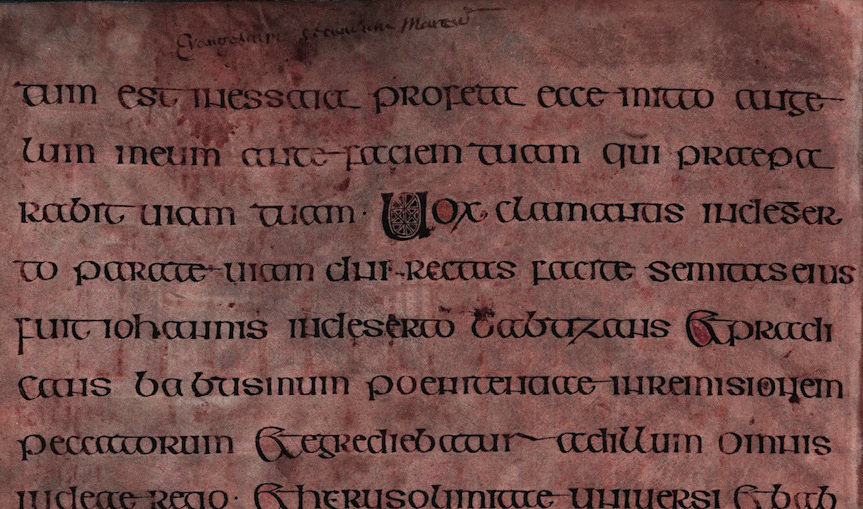 Evangelium secundum Marcum
tum est inessaia profeta ecce mitto ange
lum meum ante faciem tuam qui praepa
rabit uiam tuam · Uox clamantis indeser
to parate uiam dni · rectas facite semitas eius
fuit iohannis indeserto babtizans & praedi
cans babtismum poenitentiae inremisionem
peccatorum & egrediebatur adillum omnis
iudeae regio · & herusolimitae uniuersi & bab